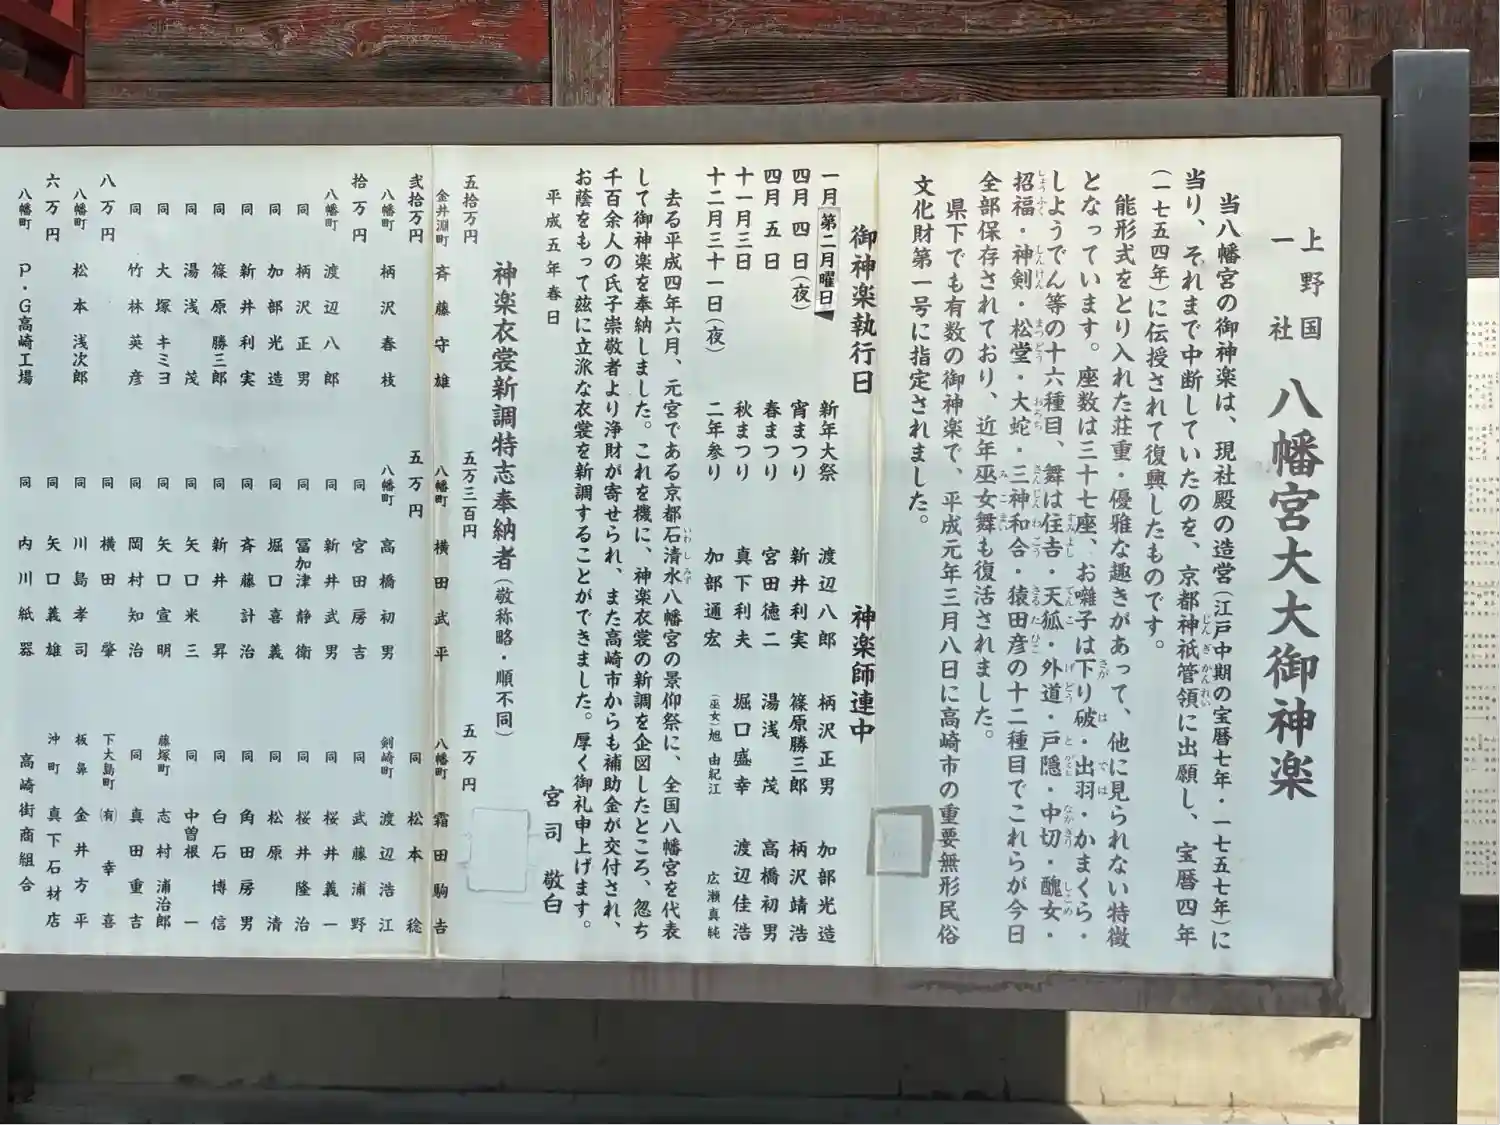 上野国
一社
八幡宮大大御神楽
当八幡宮の御神楽は、現社殿の造営(江戸中期の宝暦七年・一七五七年)に
当り、それまで中断していたのを、京都神祇管領に出願し、宝暦四年
(一七五四年)に伝授されて復興したものです。
能形式をとり入れた荘重・優雅な趣きがあって、他に見られない特徴
となっています。座数は三十七座、お囃子は下り破・出羽・かまくら・
しようでん等の十六種目、舞は住吉・天狐・外道・戸隠・中切・醜女・
招福・神剣・松堂・大蛇・三神和合・猿田彦の十二種目でこれらが今日
全部保存されており、近年巫女舞も復活されました。
県下でも有数の御神楽で、平成元年三月八日に高崎市の重要無形民俗
文化財第一号に指定されました。
御神楽執行日 神楽師連中
一月第二月曜日 新年大祭 渡辺八郎 柄沢正男 加部光造
四月四日(夜) 宵まつり 新井利実 篠原勝三郎 柄沢靖浩
四月五日 春まつり 宮田徳二 湯浅茂 高橋初男
十一月三日 秋まつり 真下利夫 堀口盛幸 渡辺佳浩
十二月三十一日(夜) 二年参り 加部通宏 (巫女)旭由紀江 広瀬真純
去る平成四年六月、元宮である京都石清水八幡宮の景仰祭に、全国八幡宮を代表
して御神楽を奉納しました。これを機に、神楽衣裳の新調を企図したところ、忽ち
千百余人の氏子崇敬者より浄財が寄せられ、また高崎市からも補助金が交付され、
お蔭をもって茲に立派な衣裳を新調することができました。厚く御礼申上げます。
平成五年春日 宮司 敬白
神楽衣裳新調特志奉納者(敬称略・順不同)
五拾万円 五万三百円 五万円
金井淵町 斉藤守雄 八幡町 横田武平 八幡町 霜田駒吉
弐拾万円 五万円 同 松本稔
八幡町 柄沢春枝 八幡町 高橋初男 剣崎町 渡辺浩江
拾万円 同 宮田房吉 同 武藤浦野
八幡町 渡辺八郎 同 新井武男 同 桜井義一
同 柄沢正男 同 冨加津静衛 同 桜井隆治
同 加部光造 同 堀口喜義 同 松原清
同 新井利実 同 斉藤計治 同 角田房男
同 篠原勝三郎 同 新井昇 同 白石博信
同 湯浅茂 同 矢口米三 同 中曽根一
同 大塚キミヨ 同 矢口宣明 藤塚町 志村浦治郎
同 竹林英彦 同 岡村知治 同 真田重吉
八万円 同 横田肇 下大島町 (有)幸喜
八幡町 松本浅次郎 同 川島孝司 板鼻 金井方平
六万円 同 矢口義雄 沖町 真下石材店
八幡町 P・G高崎工場 同 内川紙器 高崎街商組合